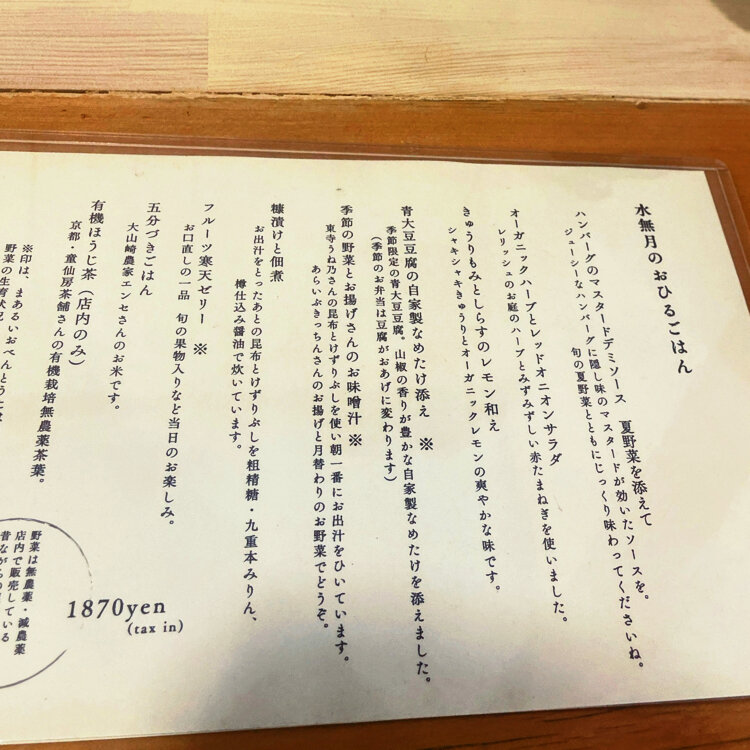 水無月のおひるごはん
ハンバーグのマスタードデミソース　夏野菜を添えて
ジューシーなハンバーグに隠し味のマスタードが効いたソースを。
旬の夏野菜とともにじっくり味わってくださいね。
オーガニックハーブとレッドオニオンサラダ
レリッシュのお庭のハーブとみずみずしい赤たまねぎを使いました。
きゅうりもみとしらすのレモン和え
シャキシャキきゅうりとオーガニックレモンの爽やかな味です。
青大豆豆腐の自家製なめたけ添え　※
季節限定の青大豆豆腐。山椒の香りが豊かな自家製なめたけを添えました。
（季節のお弁当は豆腐がおあげに変わります）
季節の野菜とお揚げさんのお味噌汁　※
東寺うね乃さんの昆布とけずりぶしを使い朝一番にお出汁をひいています。
あらいぶきっちんさんのお揚げと月替わりのお野菜でどうぞ。
糠漬けと佃煮
お出汁をとったあとの昆布とけずりぶしを粗精糖・九重本みりん、
樽仕込み醤油で炊いています。
フルーツ寒天ゼリー　※
お口直しの一品　旬の果物入りなど当日のお楽しみ。
五分づきごはん
大山崎農家エンセさんのお米です。
有機ほうじ茶（店内のみ）
京都・童仙房茶舗さんの有機栽培無農薬茶葉。
※印は、まあるいおべんとうには
野菜の生育状況
1870yen
(tax in)
野菜は無農薬・減農薬
店内で販売している
昔ながらの